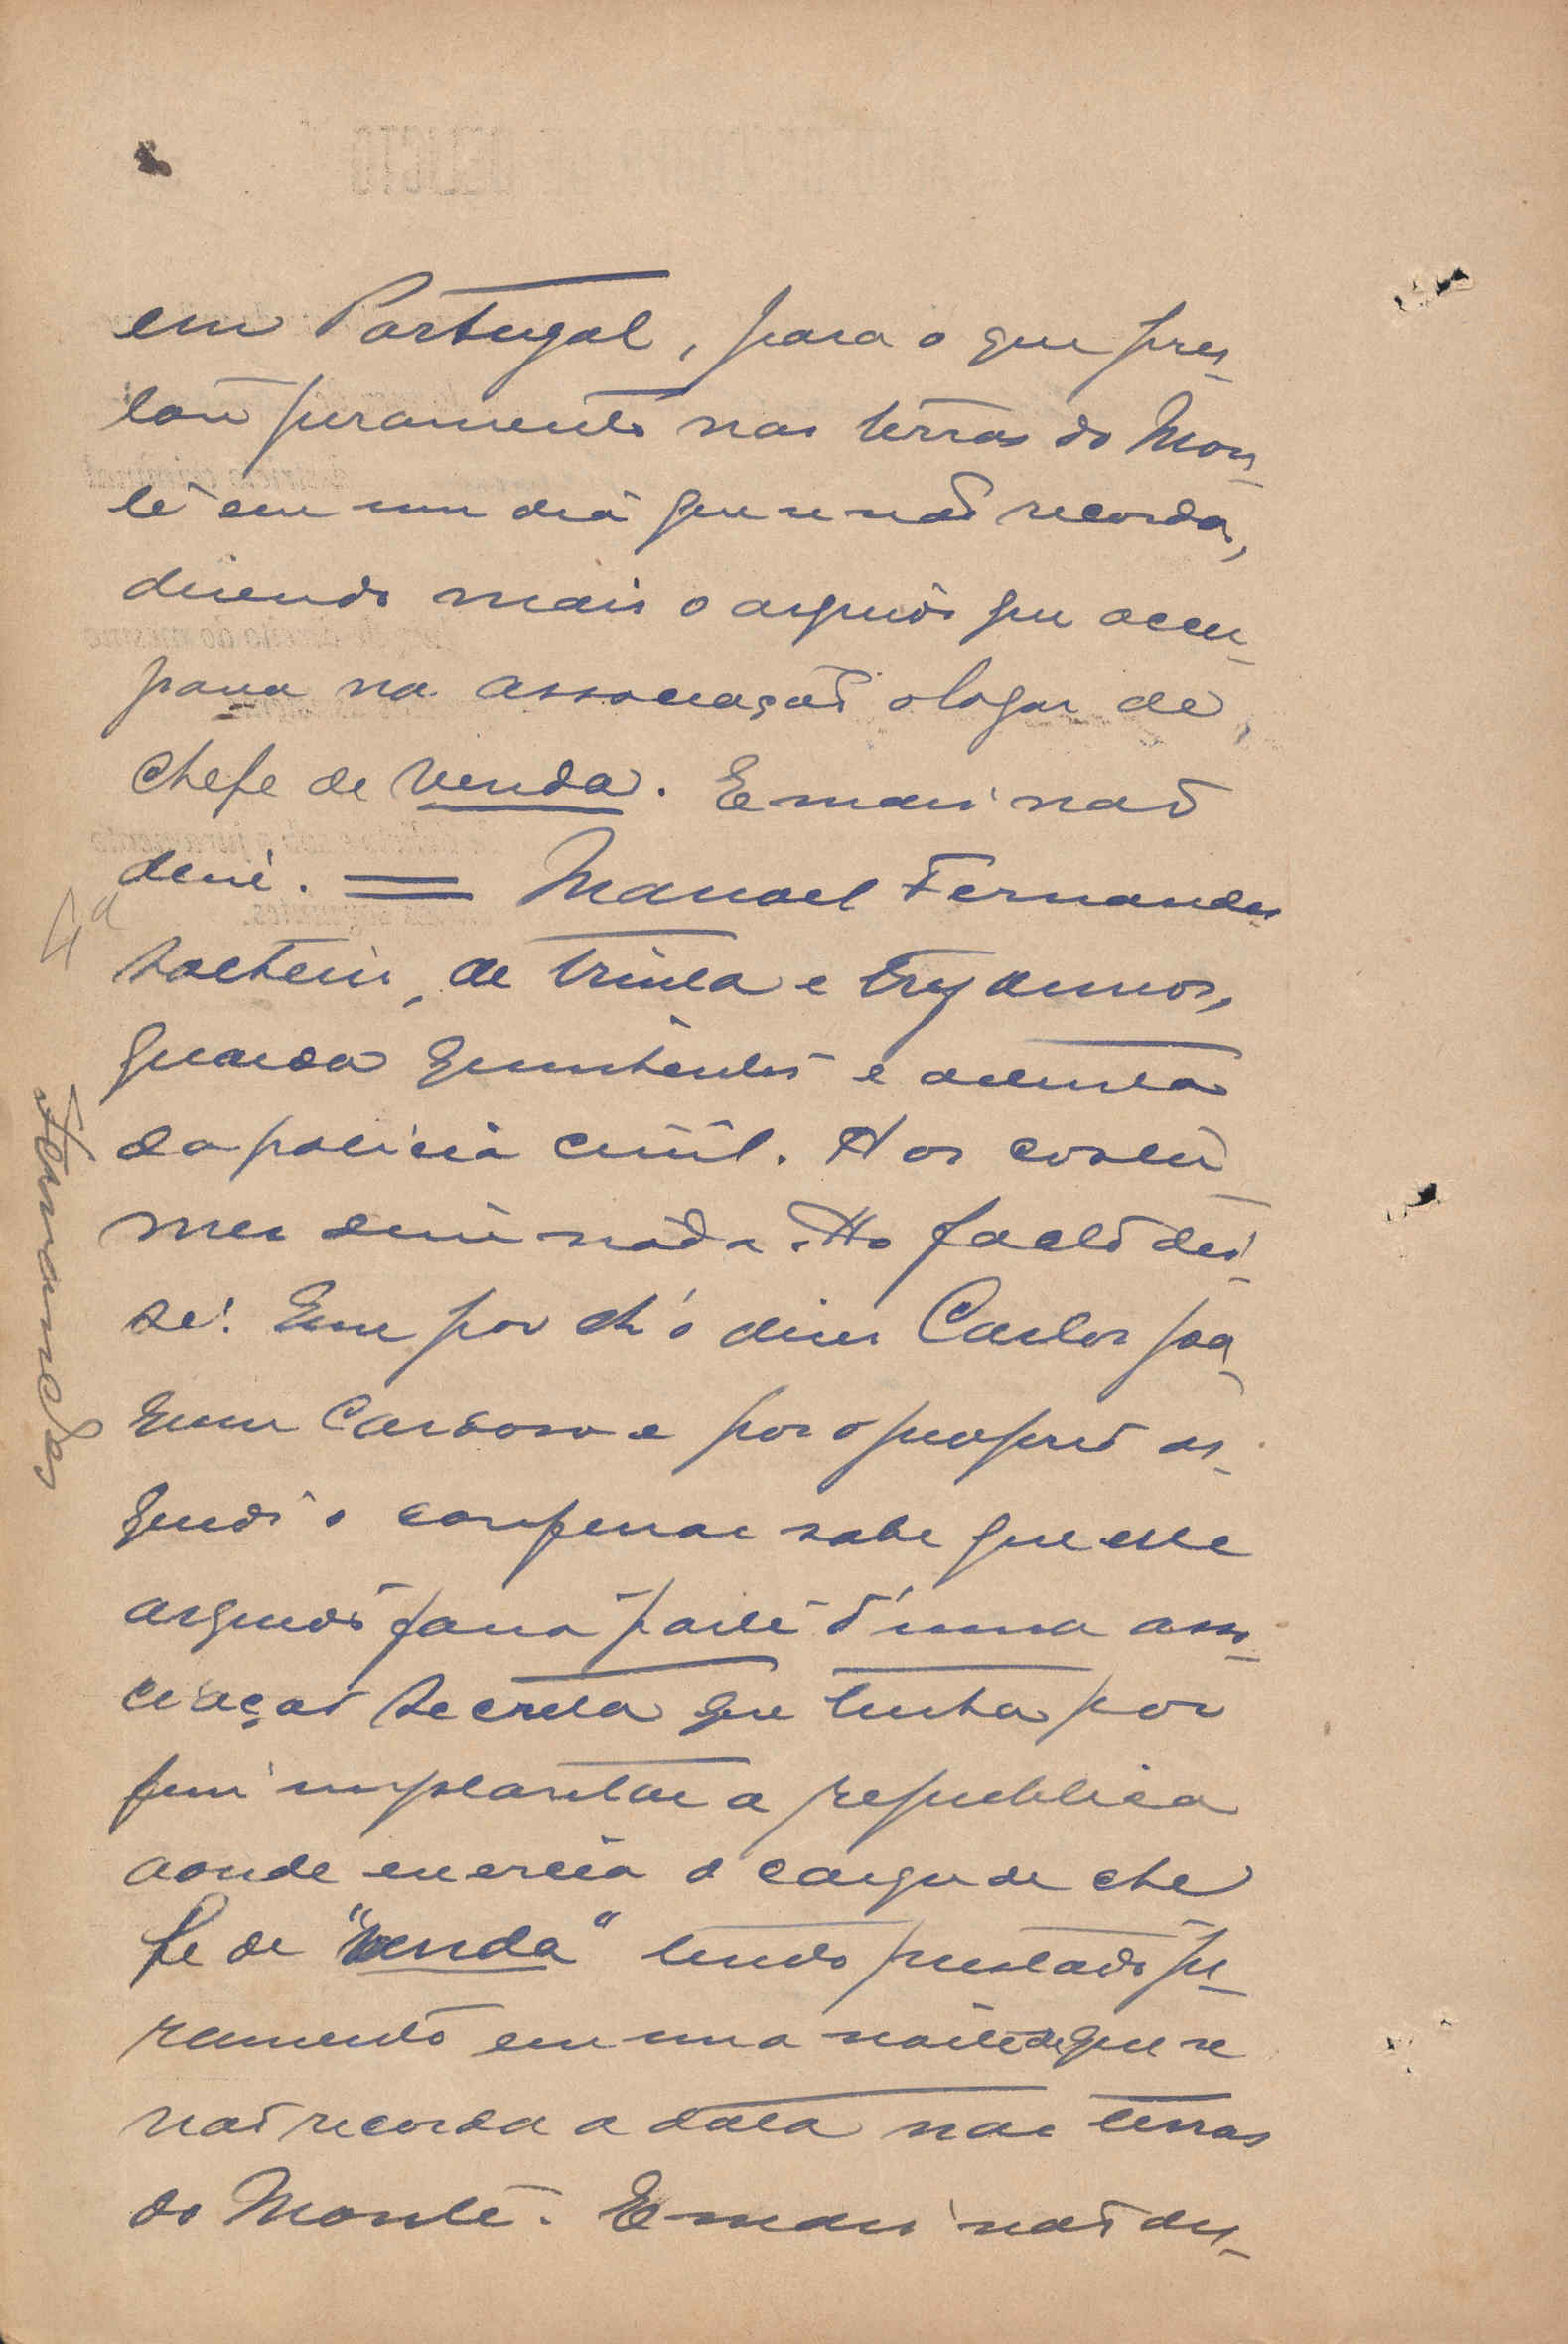 em Portugal, para o que pres-
tou juramento nas terras do Mon-
te em um dia que se não recorda,
dizendo mais o arguido que occu-
pava na associação o logar de
chefe de venda. E mais não
disse. = Manoel Fernandes
4ª
solteiro, de trinta e trez annos,
guarda quinhentos e oitenta
da policia civil. Aos costu-
mes disse nada. Ao facto dis-
se: Que por lh'o dizer Carlos Joa-
quim Cardoso e por o proprio ar-
guido o confessar sabe que este
arguido fazia parte d'uma asso-
ciação secreta que tinha por
fim implantar a republica
aonde exercia o cargo de che
fe de "venda" tendo prestado ju-
ramento em uma noite de que se
não recorda a data nas terras
do Monte. E mais não dis-
Fernandes